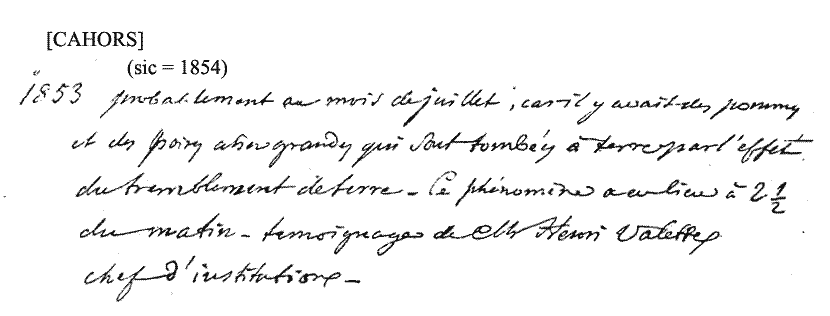 [CAHORS]
(sic = 1854)
1853 probablement au mois de juillet, car il y avait des pommes
et des poires assez grandes qui sont tombées à terre par l'effet
du tremblement de terre - Ce phénomène a eu lieu à 2 1/2
du matin - témoignage de Mr Henri Valette
chef d'institution -